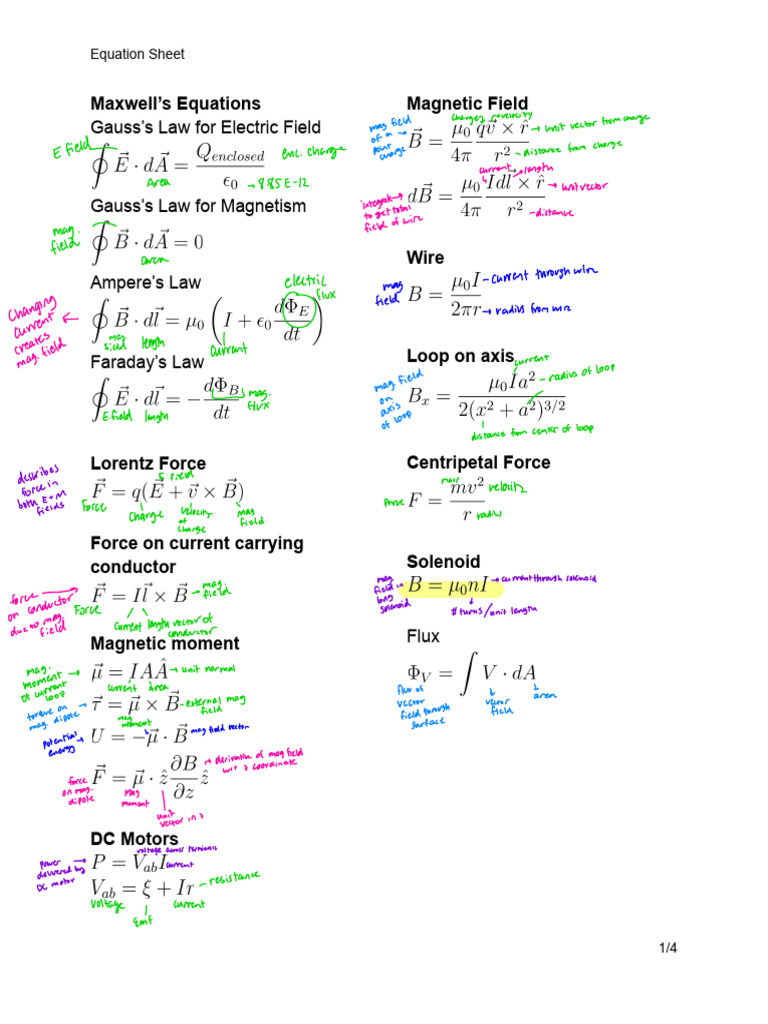 Equation Sheet
Maxwell's Equations
Gauss's Law for Electric Field
E field
∮ E⃗ · dA⃗ = Q_enclosed / ϵ₀
enc. charge
Area
→ 8.85E-12
Gauss's Law for Magnetism
mag. field
∮ B⃗ · dA⃗ = 0
area
Ampere's Law
electric flux
Changing current creates mag. field
∮ B⃗ · dl⃗ = μ₀ (I + ϵ₀ dΦ_E / dt)
mag. length
current
Faraday's Law
∮ E⃗ · dl⃗ = − dΦ_B / dt
mag. flux
E.field length
Lorentz Force
describes force in both E+M fields
E field
F⃗ = q(E⃗ + v⃗ × B⃗)
Force
charge
velocity of charge
mag field
Force on current carrying
conductor
force on conductor due to mag. field
F⃗ = Il⃗ × B⃗
→ mag. field
Force
current length vector of conductor
Magnetic moment
mag. moment of current loop
μ⃗ = IAÂ → unit normal
current area
torque on mag. dipole
τ⃗ = μ⃗ × B⃗ – external mag field
mag moment
potential energy
U = −μ⃗ · B⃗ mag field vector
force on mag. dipole
F⃗ = μ⃗ · ẑ ∂B/∂z ẑ
→ derivative of mag field wrt z coordinate
mag moment
unit vector in z
DC Motors
voltage across terminals
power delivered by DC motor
P = V_ab I current
V_ab = ξ + Ir – resistance
voltage
emf
current
Magnetic Field
charge velocity
mag field of a point charge
B⃗ = μ₀/4π qv⃗ × r̂ / r²
→ unit vector from charge
– distance from charge
current length
integrate to get total field of wire
dB⃗ = μ₀/4π Idl⃗ × r̂ / r²
→ unit vector
– distance
Wire
mag field
B = μ₀I / 2πr
– current through wire
→ radius from wire
Loop on axis
current
mag. field on axis of loop
B_x = μ₀Ia² / 2(x² + a²)^3/2
– radius of loop
distance from center of loop
Centripetal Force
mass
force
F = mv² / r
velocity
radius
Solenoid
mag field in long solenoid
B = μ₀nI
→ current through solenoid
# turns/unit length
Flux
Φ_V = ∫ V · dA
flux of vector field through surface
vector field
area
1/4